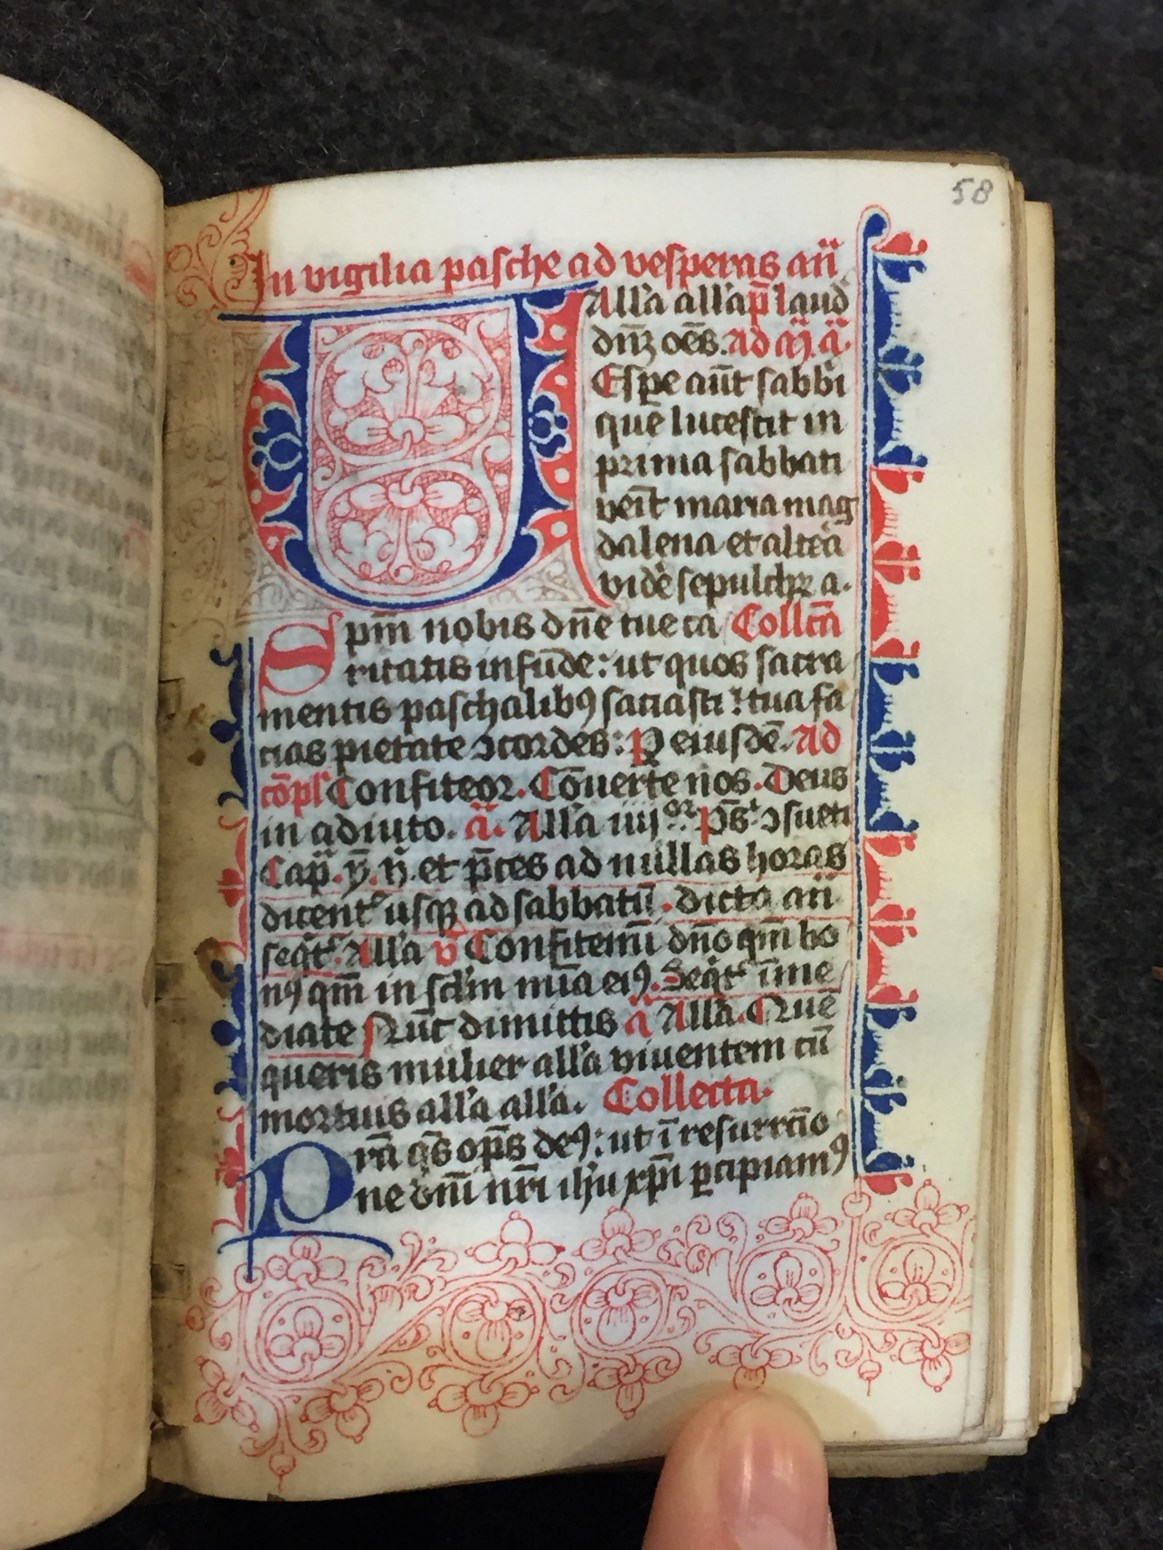 58
In vigilia pasche ad vesperas an̄
Alla alla p̄ laud
dn̄ꝫ oēs. Ad m̄ ā.
VEspe aūt sabbi
que lucescit in
prima sabbati
veīt maria mag
dalena et altea
videˉ sepulchꝝ a.
Spm̄ nobis dn̄e tue ca Collcā
ritatis infūde: ut quos sacra
mentis paschalibꝰ saciasti: tua fa
cias pietate ↄcordes: P eiusdē. Ad
cōpl Confiteor. Cōuerte nos. Deus
in adiuto. ā. Alla iiijor. ps̄ ↄsueti
Cap̄. ẏ. ẏ. et p̄ces ad nullas horas
dicent usqꝫ ad sabbatū. dicto an̄
seqt̉. Alla v̄ Confitemī dn̄o qm̄ bo
nꝰ qm̄ in sclm̄ mīa eiꝰ. Seqt̉ īme
diate Nūc dimittis ā Alla. Que
queris mulier alla viventem cū
mortuis alla alla. Collecta.
Prā qs̄ op̄s deꝰ: ut ī resurrcīo
ne dn̄i nr̄i ihū xp̄i ꝑcipiamꝰ